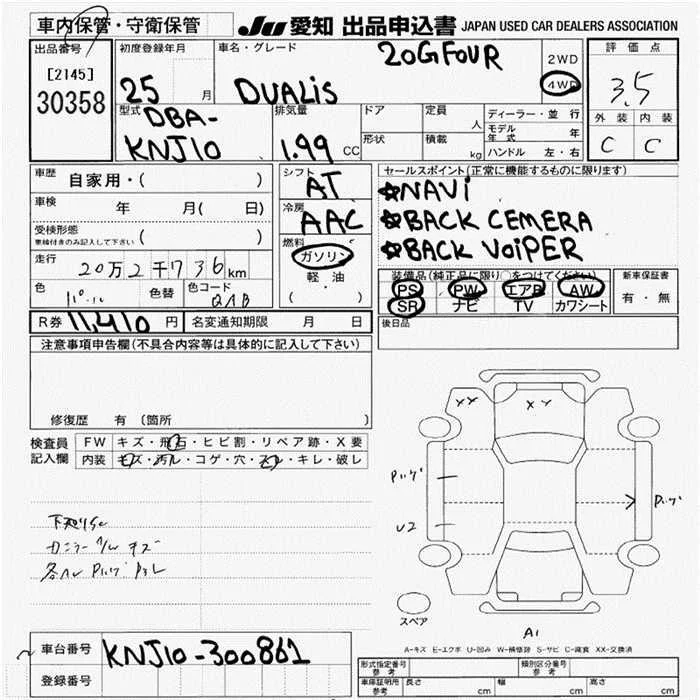 車内保管・守衛保管
JU 愛知 出品申込書 JAPAN USED CAR DEALERS ASSOCIATION
出品番号
[2145]
30358
初度登録年月
25 月
車名・グレード
20G FOUR
DUALIS
2WD
4WD
評価点
3.5
外装 内装
C C
型式
DBA-
KNJ10
排気量
1.99 CC
ドア
形状
定員 人
積載 kg
ディーラー・並行
モデル年式 年
ハンドル 左・右
車歴 自家用・( )
車検 年 月( 日)
受検形態
車検付きのみ記入して下さい ( )
走行 20万2千736km
色 色替 色コード
QAB
シフト
AT
冷房
AAC
燃料
ガソリン
軽・油
( ・ )
セールスポイント(正常に機能するものに限ります)
☆NAVi
☆BACK CEMERA
☆BACK VOiPER
装備品(純正品に限り○をつけてください)
PS PW エアB AW
SR ナビ TV カワシート
新車保証書
有・無
R券 11,410 円 名変通知期限 月 日
後日品
注意事項申告欄(不具合内容等は具体的に記入して下さい)
修復歴 有 (箇所 )
検査員記入欄
FW キズ・飛石・ヒビ割・リペア跡・X要
内装 キズ・汚れ・コゲ・穴・ズレ・キレ・破レ
XX XY
U2
スペア
A1
A-キズ E-エクボ U-凹み W-補修跡 S-サビ C-腐食 XX-交換済
車台番号 KNJ10-300861
登録番号
形式指定番号 参考
類別区分番号 参考
車庫証明用 参考 長さ cm 幅 cm 高さ cm